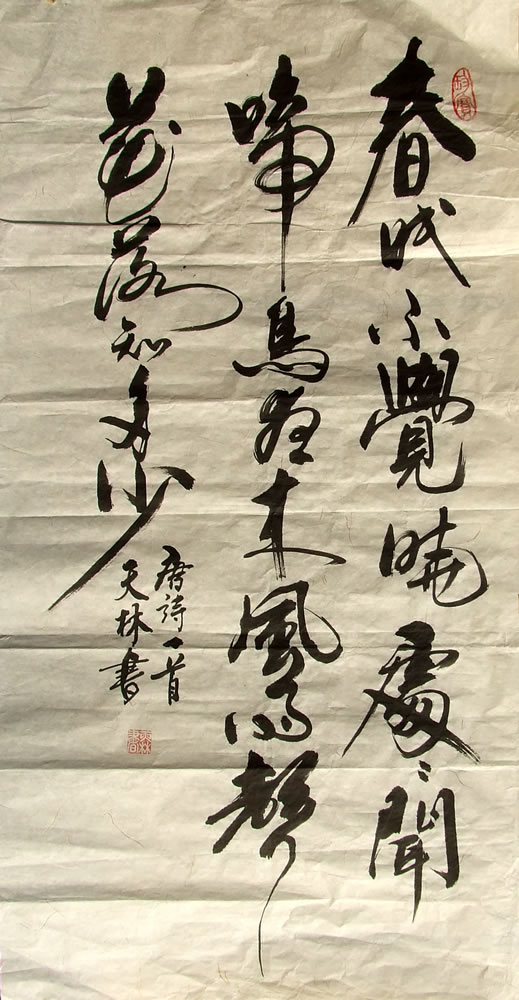 春眠不覺曉處〻聞
啼鳥夜来風雨聲
花落知多少
唐詩一首
天林書